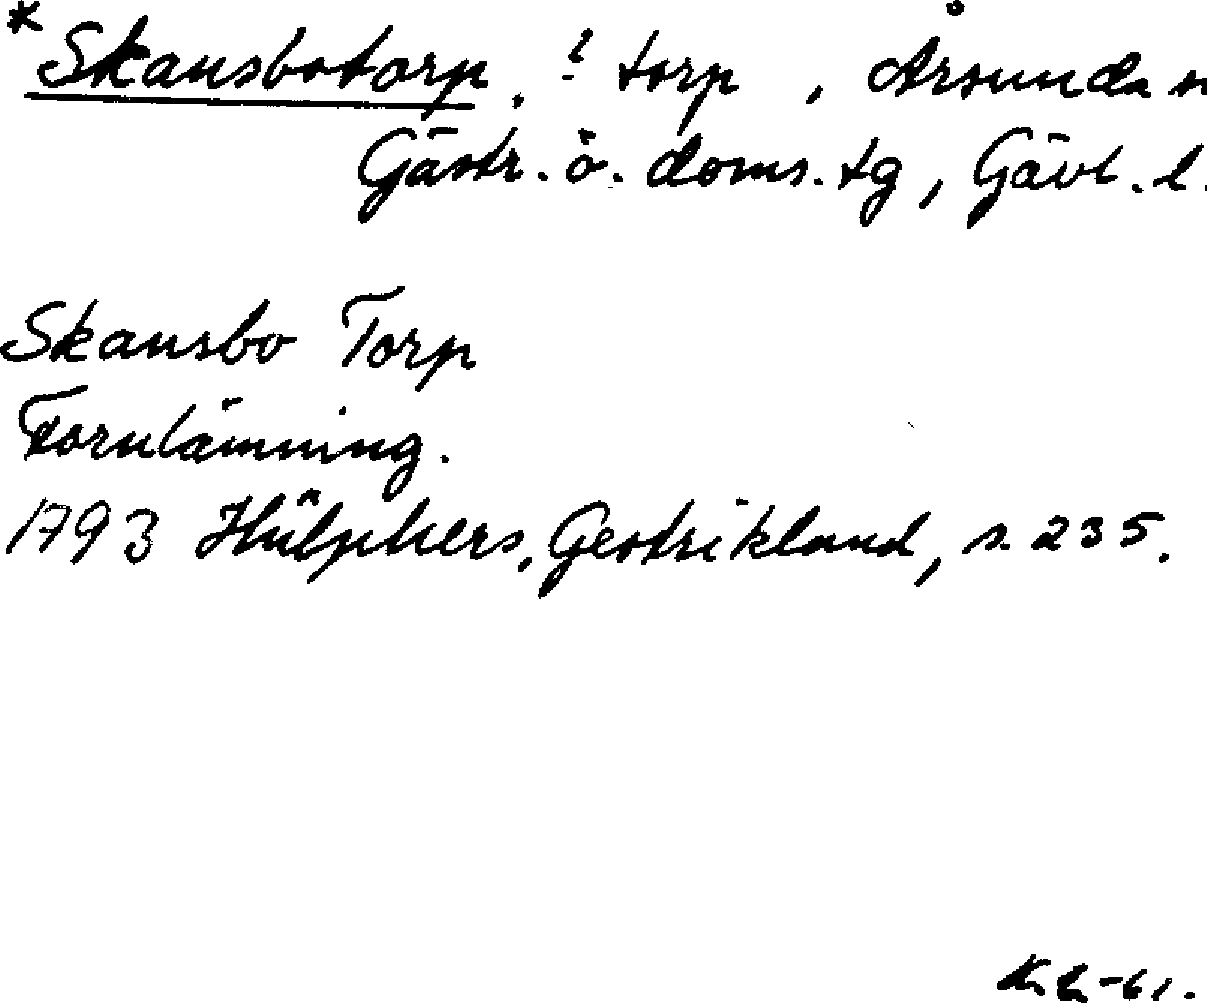 *Skansbotorp, ? torp, Årsunda s
Gästr. ö. doms. tg, Gävl. l.
Skansbo Torp
Fornlämning.
1793 Hülphers, Gestrikland, s. 235.